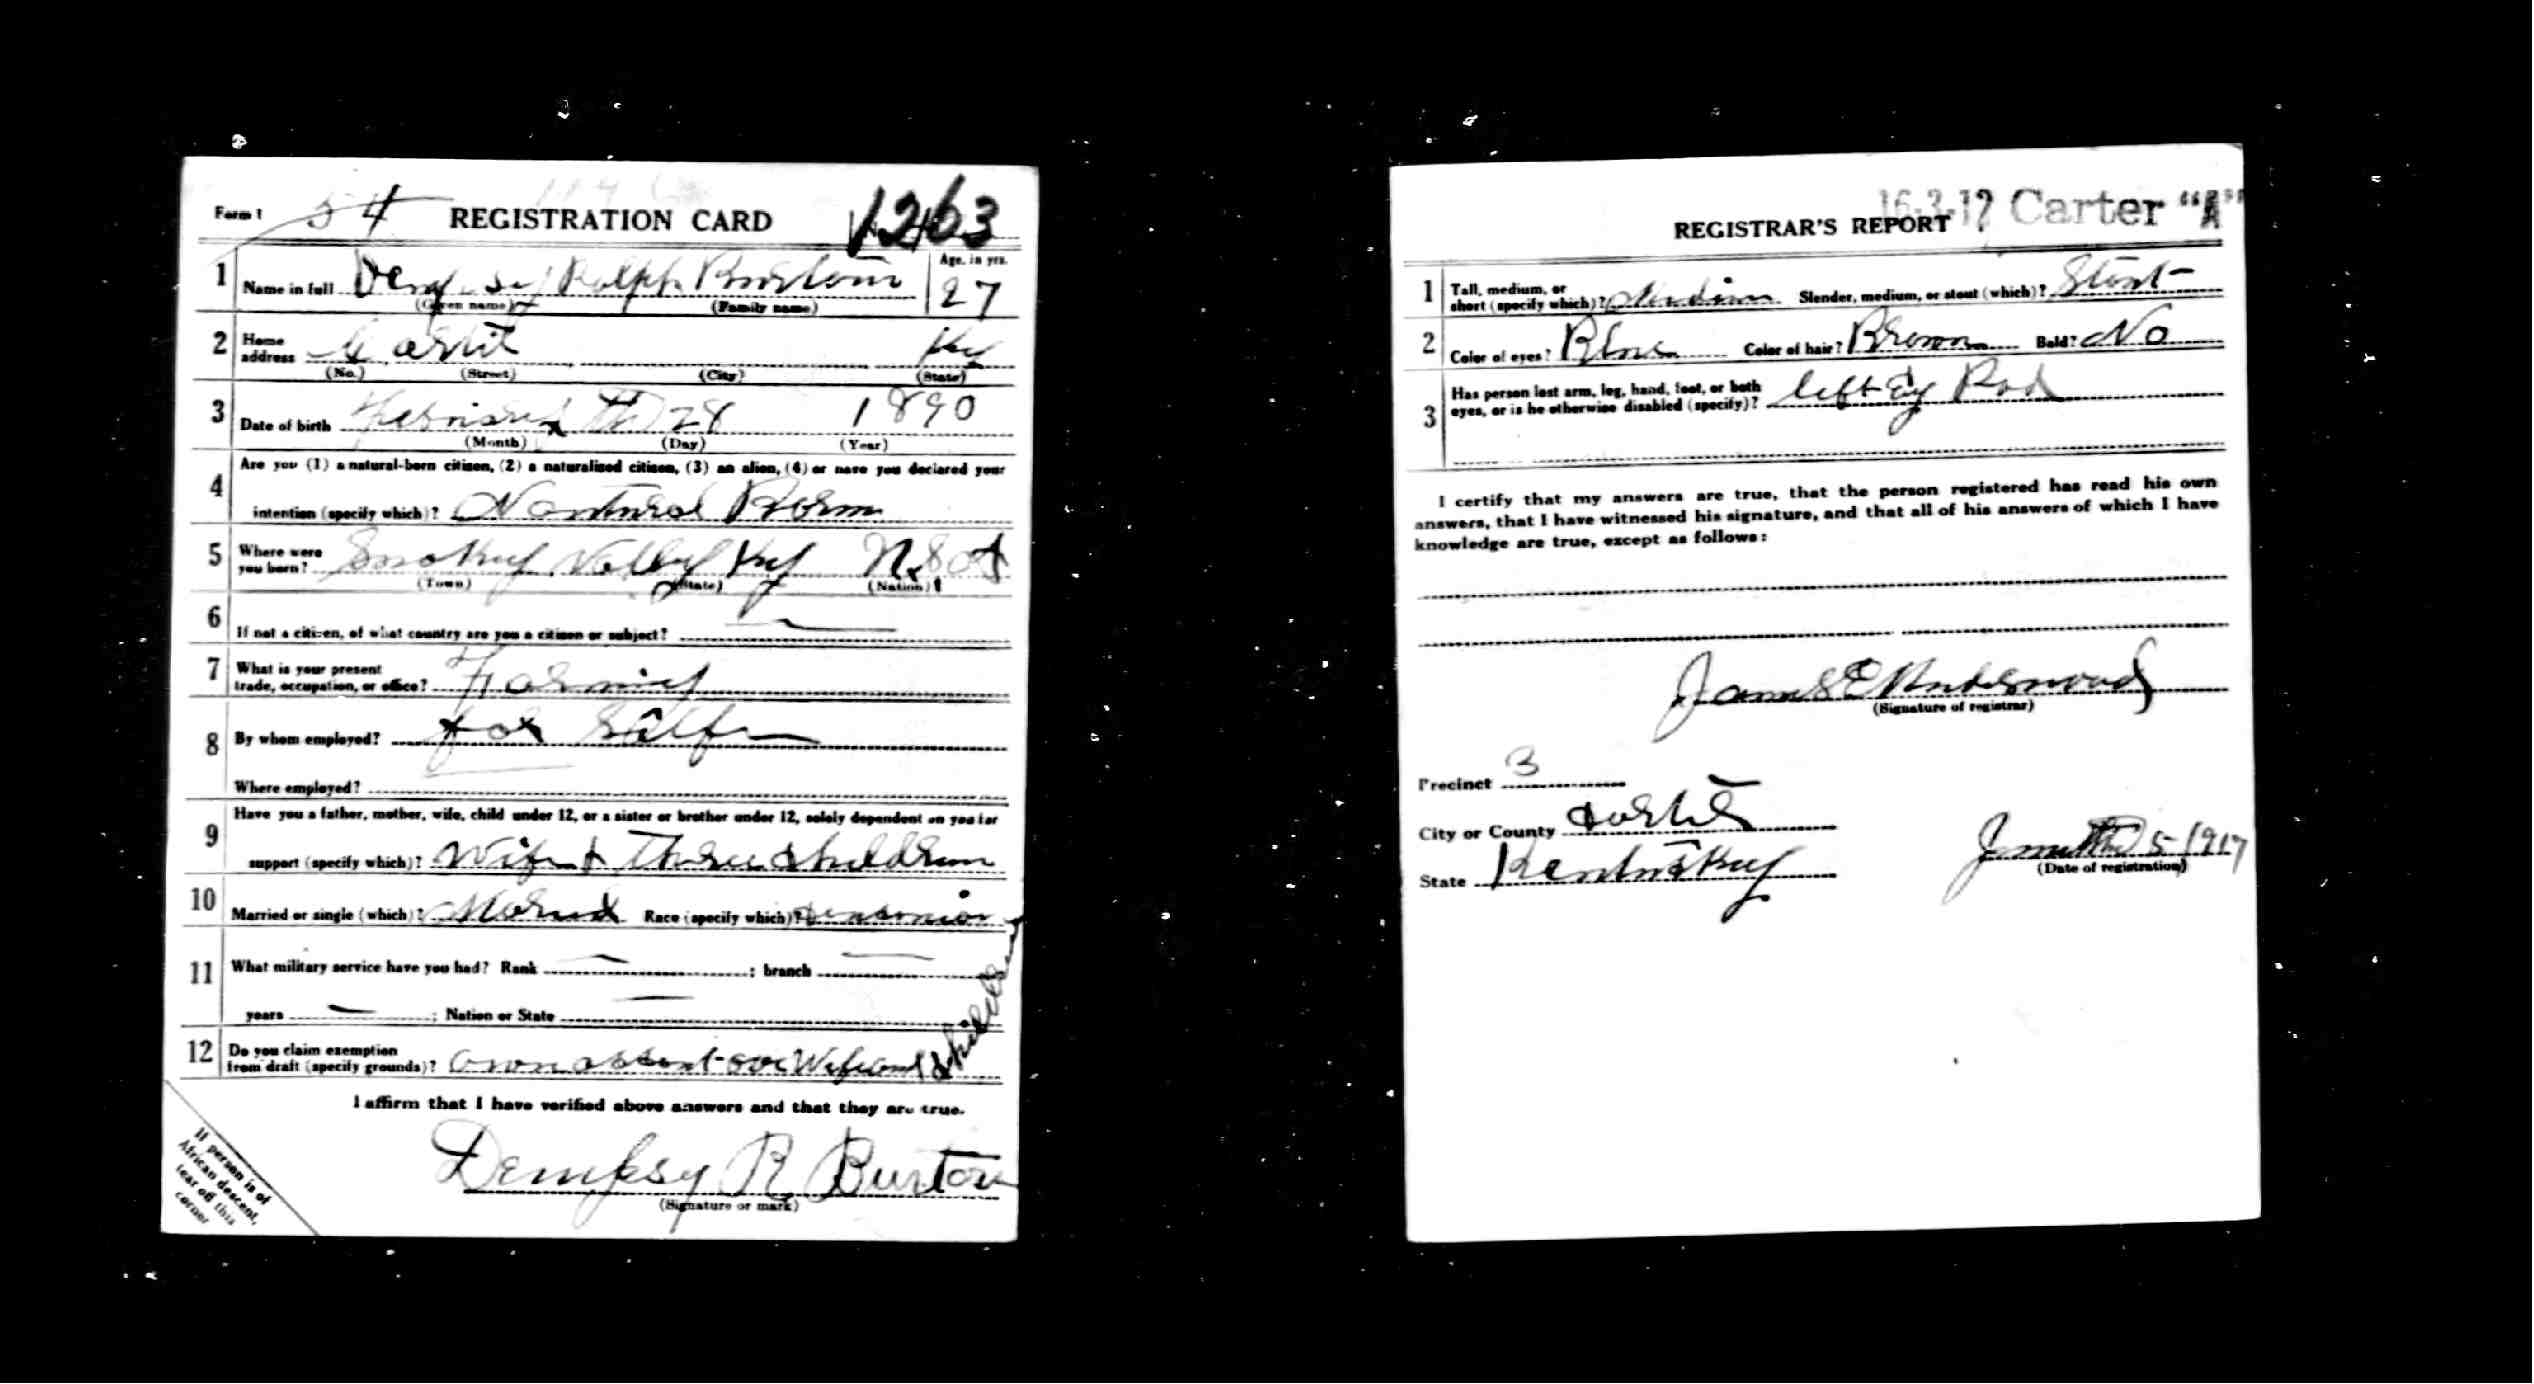 Form 1 54 REGISTRATION CARD 1263
1 Name in full Dempsey Ralph Burton Age, in yrs. 27
(Given name) (Family name)
2 Home address Carter Ky
(No.) (Street) (City) (State)
3 Date of birth 28 1890
(Month) (Day) (Year)
4 Are you (1) a natural-born citizen, (2) a naturalized citizen, (3) an alien, (4) or have you declared your
intention (specify which)? Natural Born
5 Where were you born? Smokey Valley Ky
(Town) (State) (Nation)
6 If not a citizen, of what country are you a citizen or subject?
7 What is your present trade, occupation, or office? Farming
8 By whom employed? for Self
Where employed?
9 Have you a father, mother, wife, child under 12, or a sister or brother under 12, solely dependent on you for
support (specify which)? Wife & Three children
10 Married or single (which)? Maried Race (specify which)?
11 What military service have you had? Rank ; branch
years ; Nation or State
12 Do you claim exemption from draft (specify grounds)? Wife and children
I affirm that I have verified above answers and that they are true.
Dempsy R Burton
(Signature or mark)
If person is of
African descent,
tear off this
corner
16-3-17 Carter "A"
REGISTRAR'S REPORT
1 Tall, medium, or short (specify which)? Medium Slender, medium, or stout (which)? Stout
2 Color of eyes? Blue Color of hair? Brown Bald? No
3 Has person lost arm, leg, hand, foot, or both eyes, or is he otherwise disabled (specify)? left Ey Bad
I certify that my answers are true, that the person registered has read his own
answers, that I have witnessed his signature, and that all of his answers of which I have
knowledge are true, except as follows:
James E Underwood
(Signature of registrar)
Precinct 3
City or County Carter
State Kentucky
5 1917
(Date of registration)